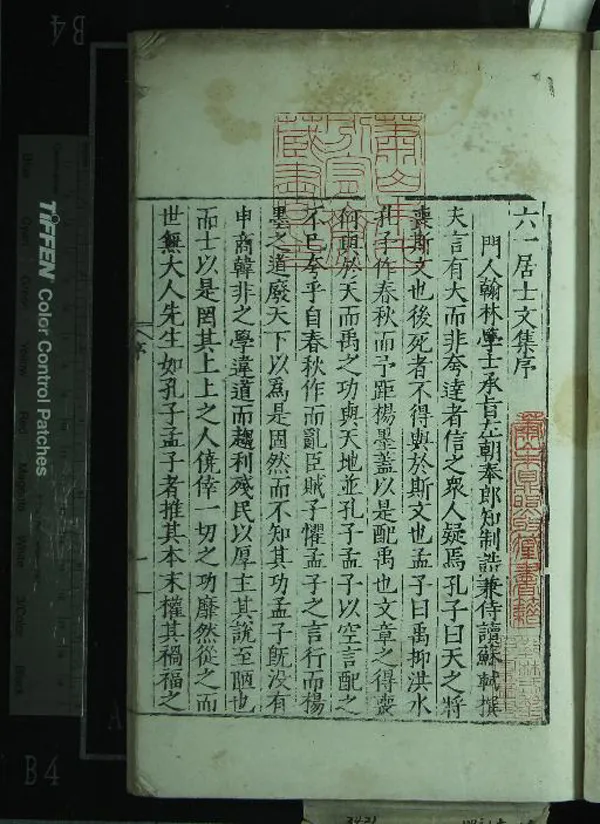 六一居士文集序
門人翰林學士承旨左朝奉郎知制誥兼侍讀蘇軾撰
夫言有大而非夸達者信之衆人疑焉孔子曰天之將
喪斯文也後死者不得與於斯文也孟子曰禹抑洪水
孔子作春秋而予距楊墨蓋以是配禹也文章之得喪
何與於天而禹之功與天地並孔子孟子以空言配之
不已夸乎自春秋作而亂臣賊子懼孟子之言行而楊
墨之道廢天下以爲是固然而不知其功孟子旣没有
申商韓非之學違道而趨利殘民以厚主其說至陋也
而士以是罔其上上之人僥倖一切之功靡然從之而
世無大人先生如孔子孟子者推其本末權其禍福之
序
TIFFEN Color Control Patches
B4
B4
A